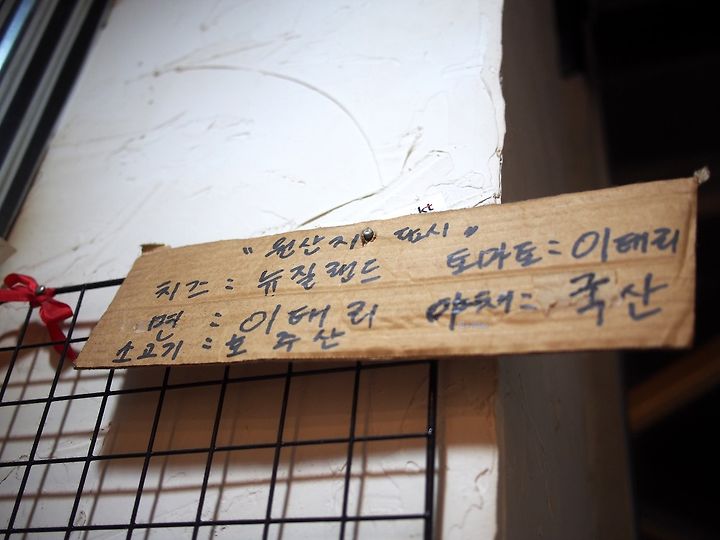 "원산지 표시"
치즈 : 뉴질랜드 토마토 : 이태리
면 : 이태리 야채 : 국산
소고기 : 호주산
kt